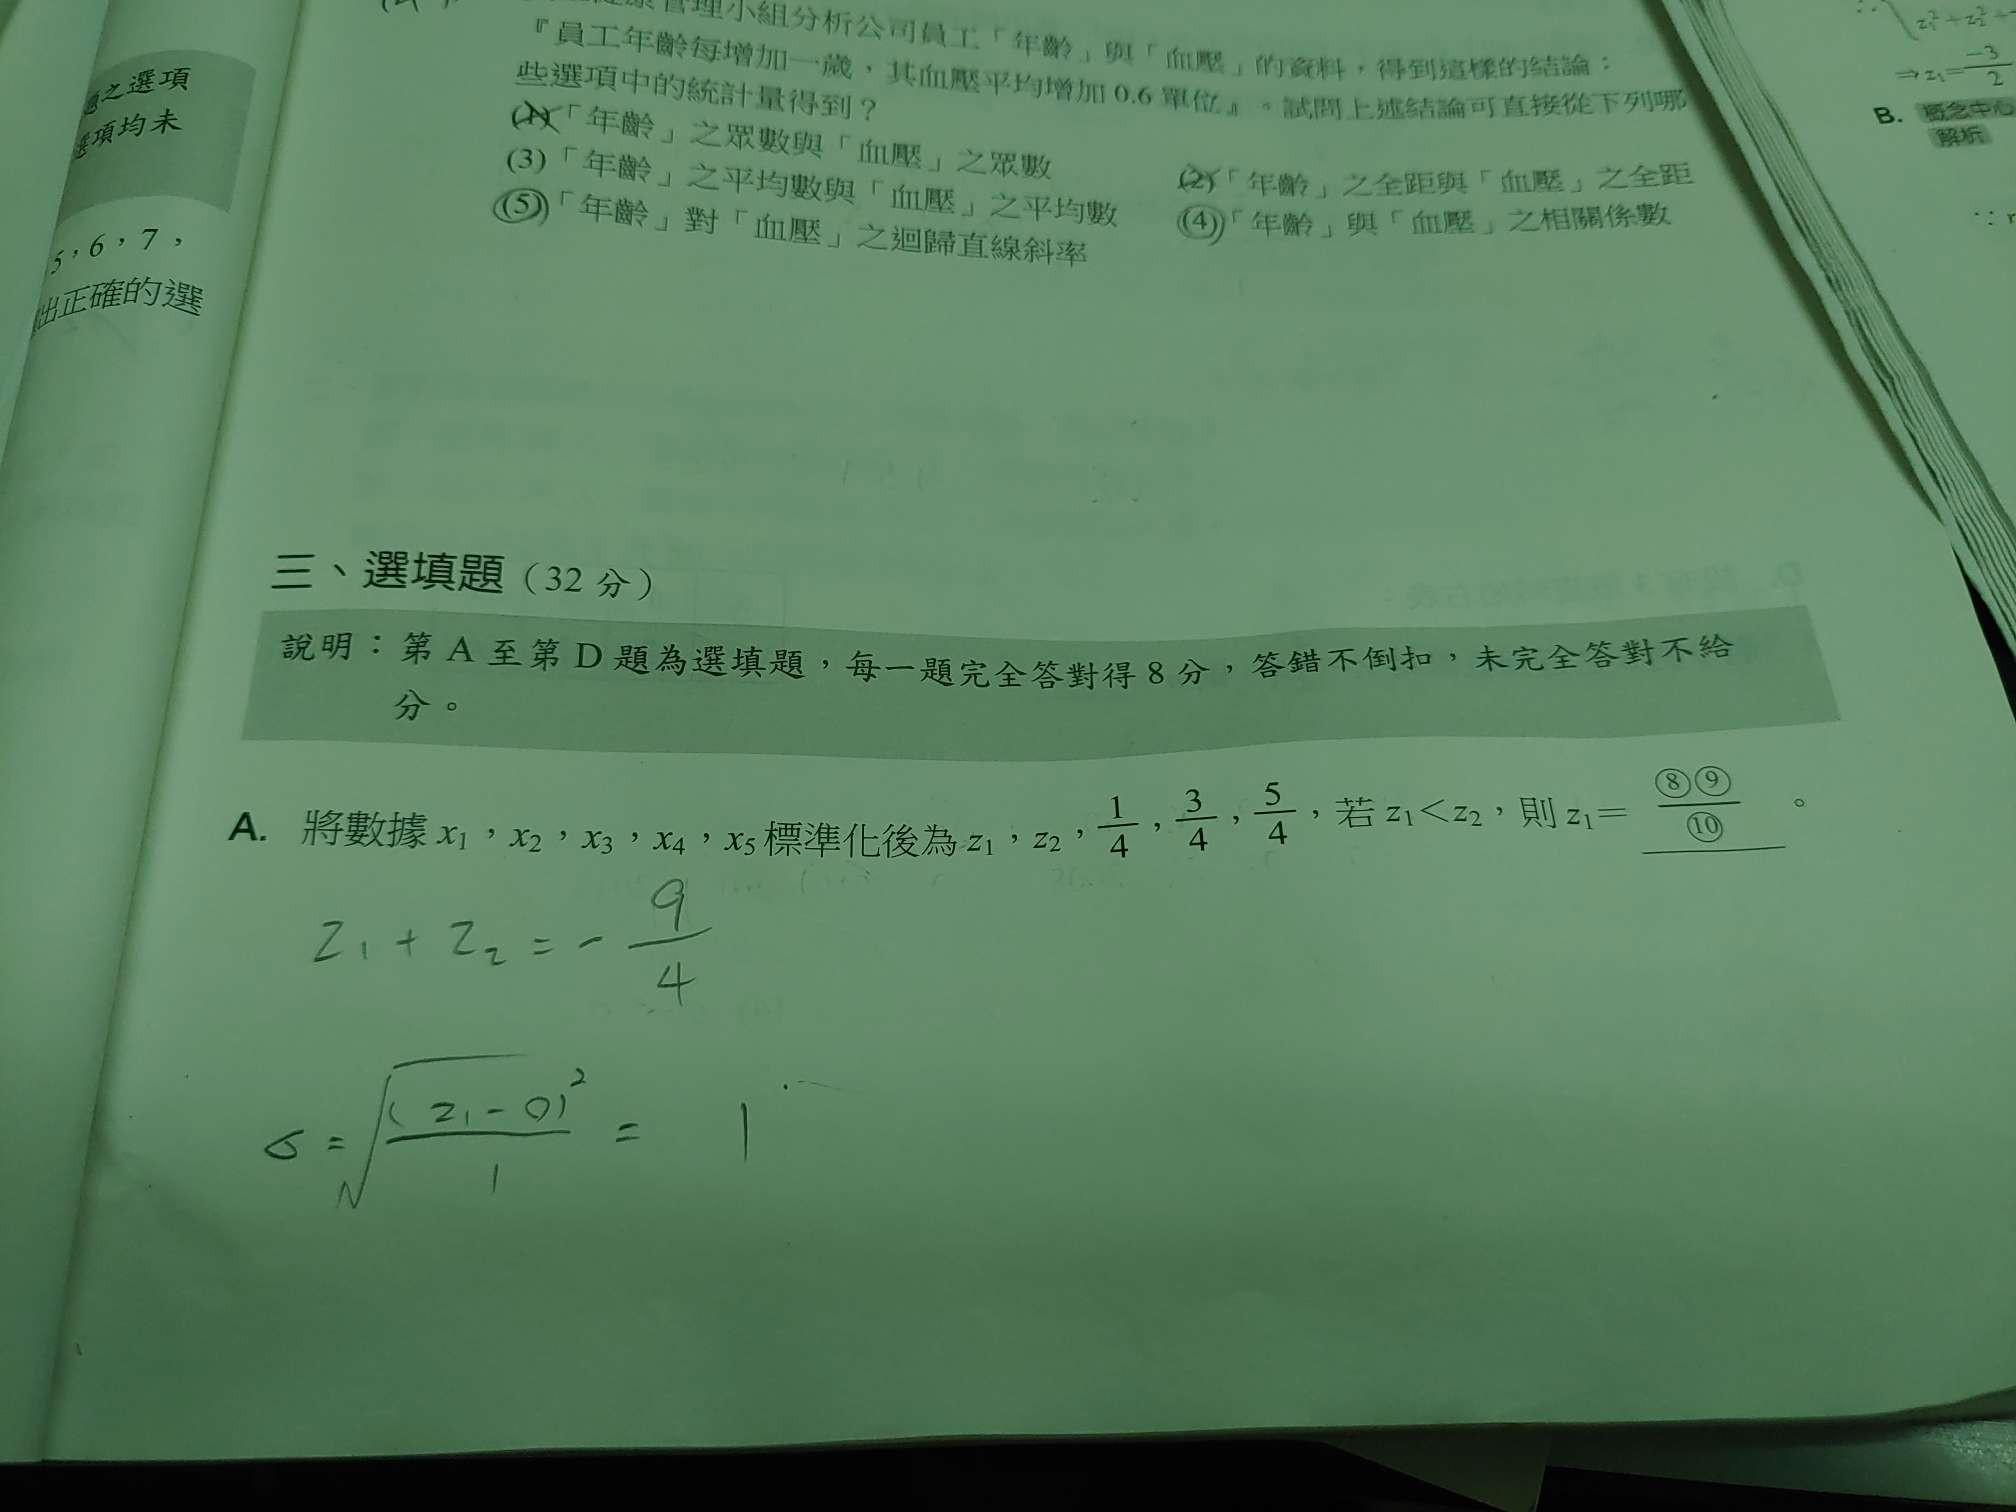 管理小組分析公司員工「年齡」與「血壓」的資料,得到這樣的結論:
『員工年齡每增加一歲,其血壓平均增加 0.6 單位』。試問上述結論可直接從下列哪
些選項中的統計量得到?
(1)「年齡」之眾數與「血壓」之眾數
(2)「年齡」之全距與「血壓」之全距
(3)「年齡」之平均數與「血壓」之平均數
(4)「年齡」與「血壓」之相關係數
(5)「年齡」對「血壓」之迴歸直線斜率
之選項
選項均未
5,6,7,
出正確的選
三、選填題(32 分)
說明:第 A 至第 D 題為選填題,每一題完全答對得 8 分,答錯不倒扣,未完全答對不給
分。
A. 將數據 x₁,x₂,x₃,x₄,x₅ 標準化後為 z₁,z₂,1/4,3/4,5/4,若 z₁<z₂,則 z₁= ⑧⑨/⑩ 。
z₁ + z₂ = - 9/4
σ = √((z₁-0)²/1) = 1
∴√z₁²+z₂²+
⇒z₁=-3/2
B. 概念中心
解析